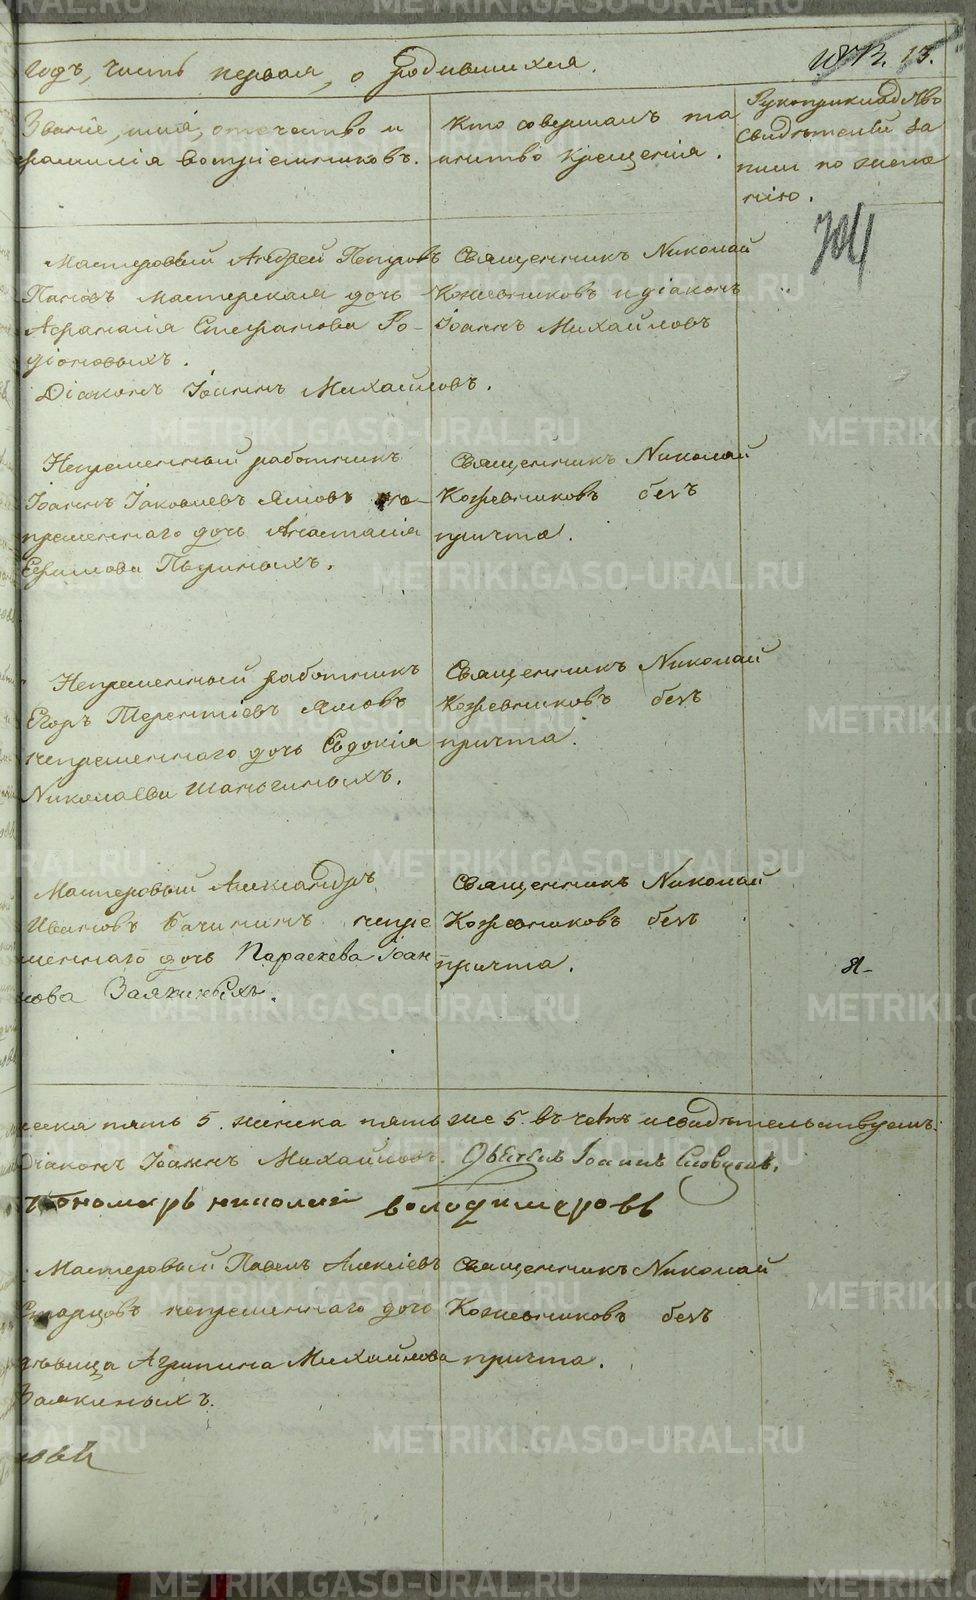 годъ, часть первая, о родившихся.
13.
Званіе, имя, отечество и
фамилія воспріемниковъ.
Кто совершалъ та
инство крещенія.
Рукоприкладство
свидѣтелей за
писи по жела
нію.
704
Мастеровый Андрей Петровъ
Пановъ мастерская дочь
Афанасія Стефанова Ро-
діоновыхъ.
Діаконъ Іоаннъ Михайловъ.
Священникъ Николай
Кожевниковъ и діаконъ
Іоаннъ Михайловъ
Непременный работникъ
Іоаннъ Іаковлевъ Ямовъ не-
пременнаго дочь Анастасія
Ефимова
Священникъ Николай
Кожевниковъ безъ
причта.
Непременный работникъ
Егоръ Терентіевъ Ямовъ
непременнаго дочь Евдокія
Николаева Шаньгиныхъ.
Священникъ Николай
Кожевниковъ безъ
причта.
Мастеровый Александръ
Ивановъ Бачининъ непре
меннаго дочь Параскева Іоан
нова Заякиныхъ.
Священникъ Николай
Кожевниковъ безъ
причта.
пять 5. женска пять же 5. въ чемъ и свидѣтельствуемъ:
Діаконъ Іоаннъ Михайловъ. Іоаннъ
Пономарь николай володимеровъ
Мастеровый Павелъ Алексіевъ
Старцовъ непременнаго дочь
дѣвица Агрипина Михайлова
Заякиныхъ.
Священникъ Николай
Кожевниковъ безъ
причта.
METRIKI.GASO-URAL.RU